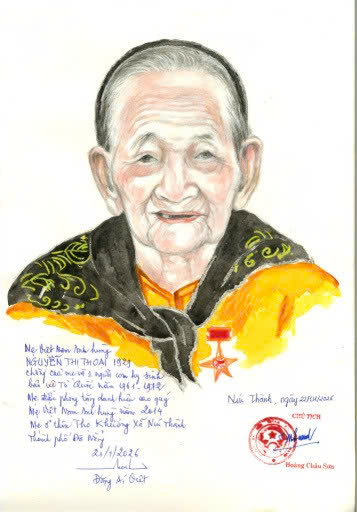 Mẹ Việt Nam Anh hùng
NGUYỄN THỊ THOẠI 1929
chồng của mẹ và 3 người con hy sinh
bảo vệ Tổ Quốc năm 1961. 1972
Mẹ được phong tặng danh hiệu cao quý
Mẹ Việt Nam Anh hùng năm 2014
Mẹ ở thôn Thọ Khương Xã Núi Thành
Thành phố Đà Nẵng
21/1/2026
Đặng Ái Việt
Núi Thành, ngày 22/01/2026
CHỦ TỊCH
Hoàng Châu Sơn